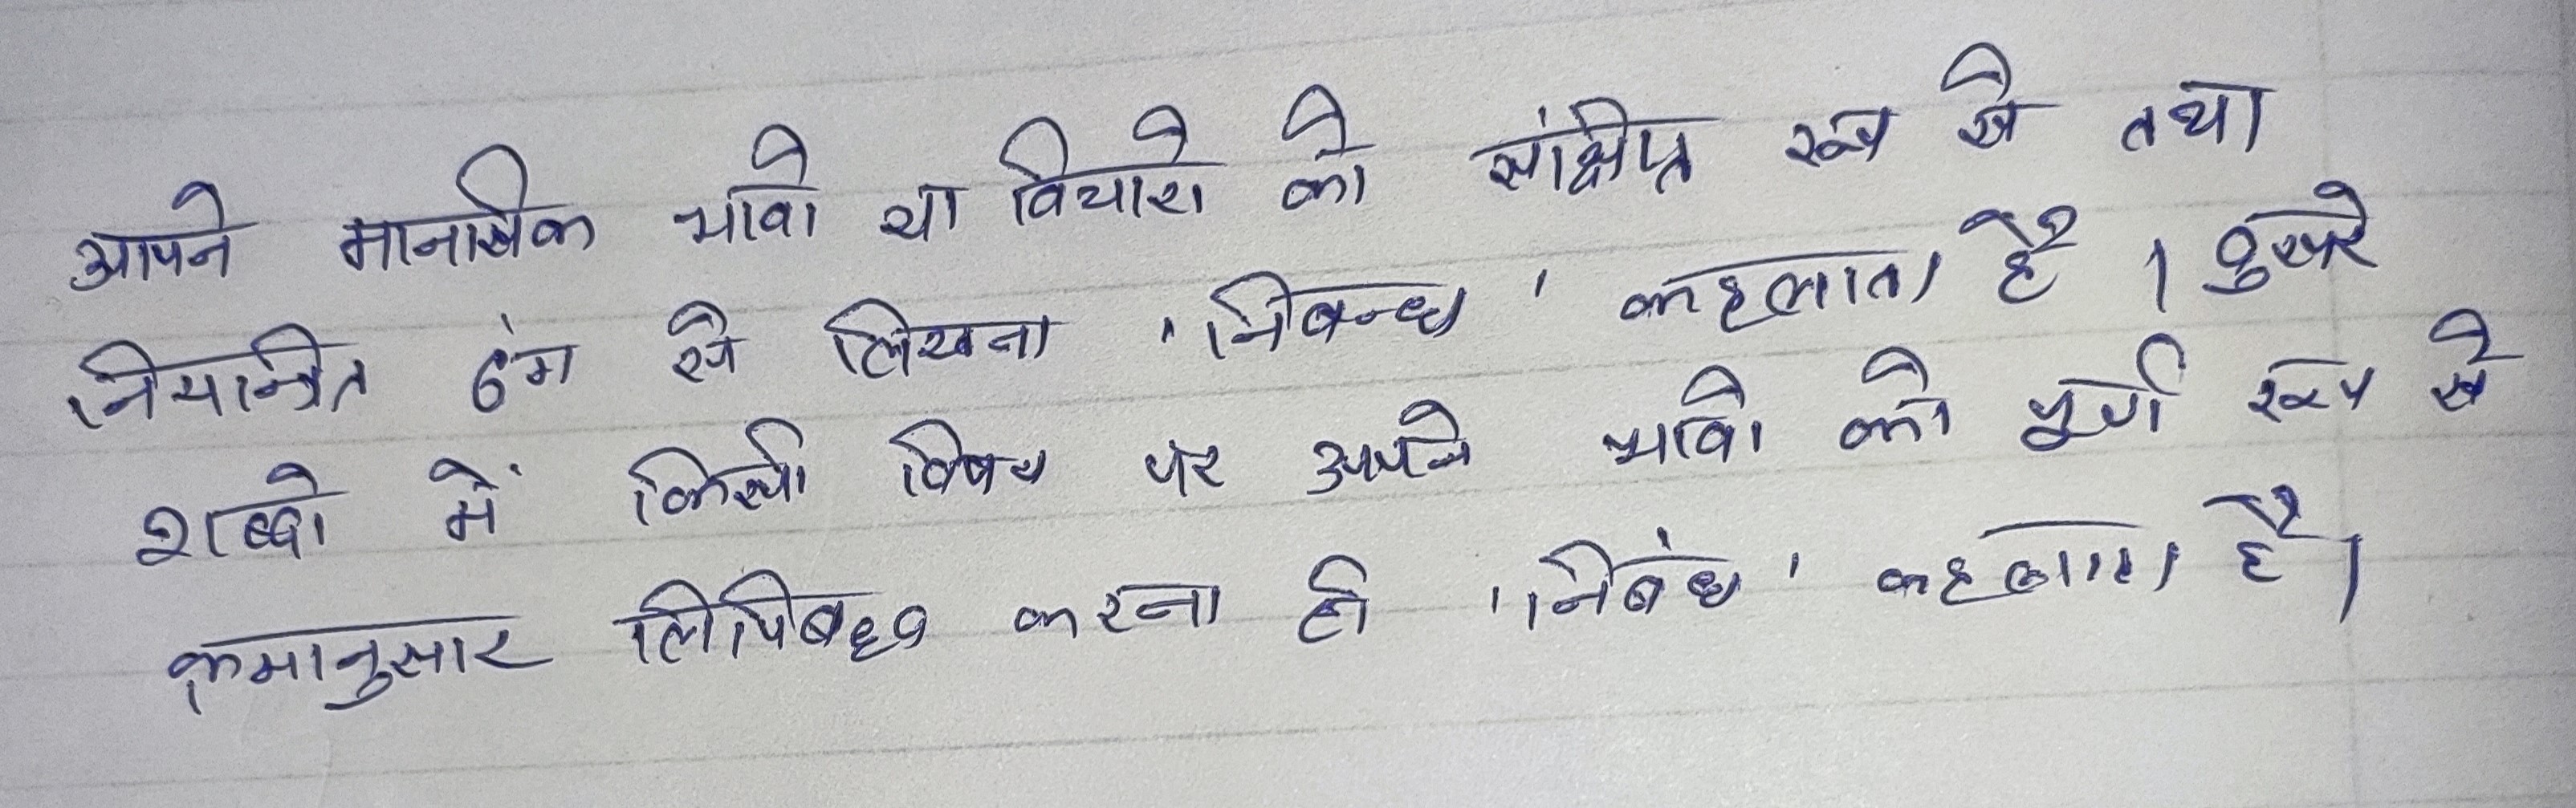 आपने मानसिक भावो या विचारो को सांक्षिप्त रूप से तथा
नियान्त्रित ढंग से लिखना 'निबन्ध' कहलाता है । दुसरे
शब्दो में किसी विषय पर अपने भावो को पूर्ण रूप से
क्रमानुसार लिपिबद्ध करना ही 'निबंध' कहलाता है।